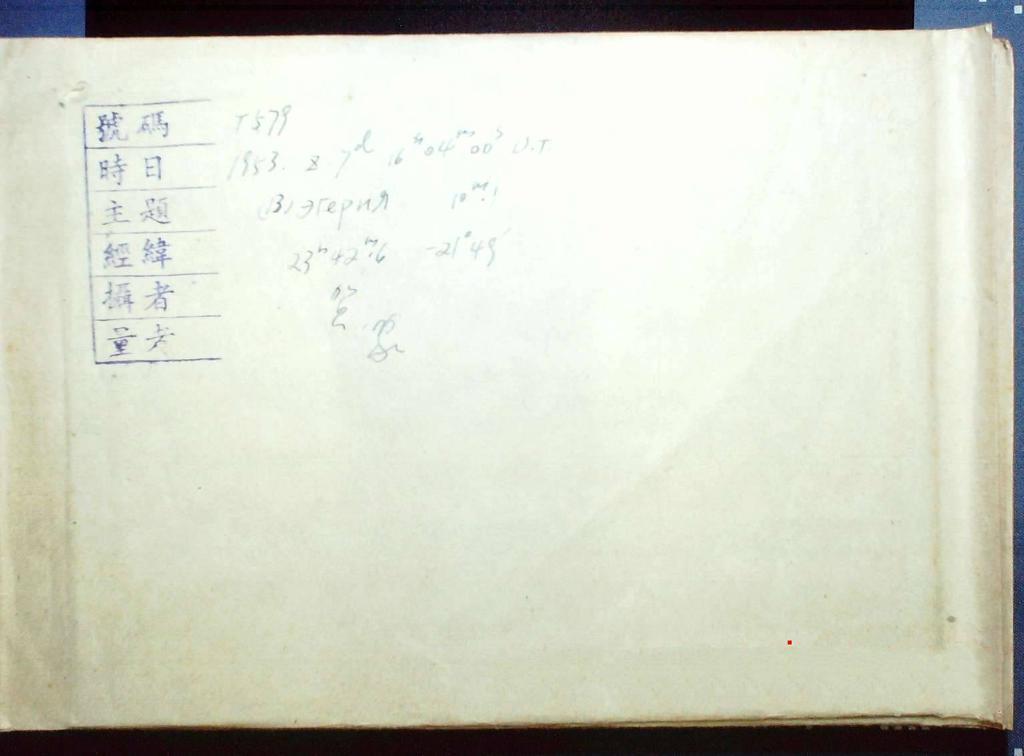 號碼 T579
時日 1953. 8 7ᵈ 16ʰ04ᵐ00ˢ U.T.
主題 (13) Эгерия 10ᵐ.1
經緯 23ʰ42ᵐ.6 -21°49′
攝者
量者